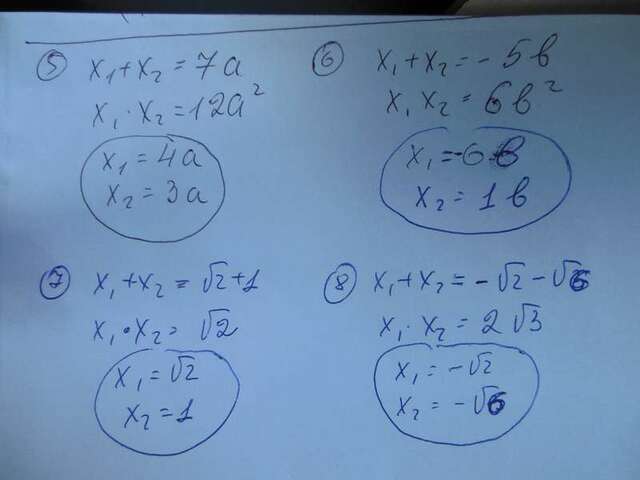 ⑤ x₁+x₂=7a
x₁·x₂=12a²
x₁=4a
x₂=3a
⑥ x₁+x₂=-5b
x₁x₂=6b²
x₁=-6b
x₂=1b
⑦ x₁+x₂=√2+1
x₁·x₂=√2
x₁=√2
x₂=1
⑧ x₁+x₂=-√2-√6
x₁·x₂=2√3
x₁=-√2
x₂=-√6